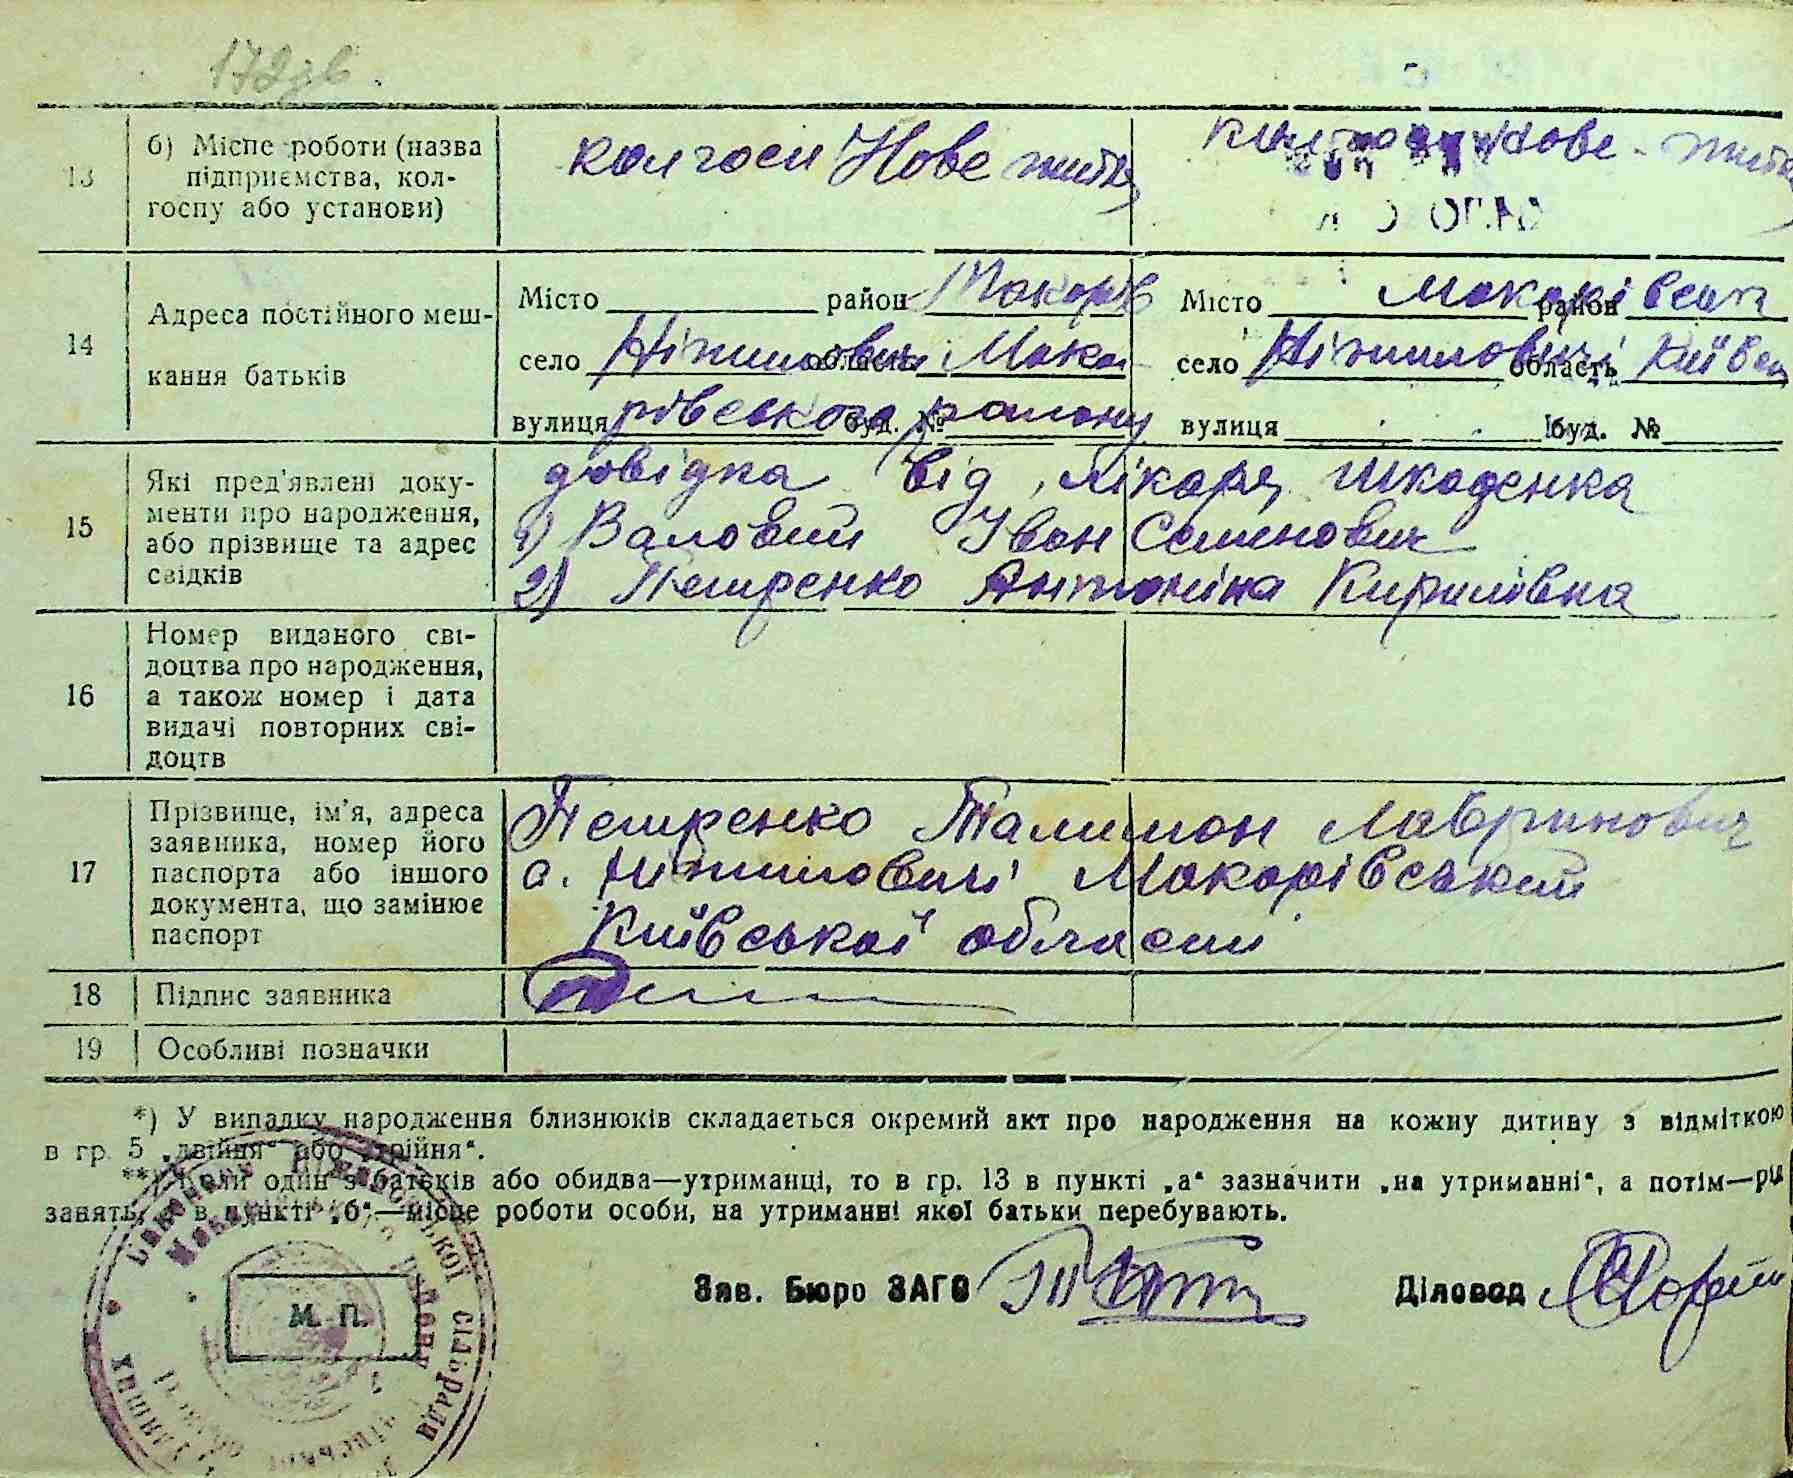 172зв.
13 б) Місце роботи (назва підприємства, колгоспу або установи) колгосп Нове життя Нове життя
14 Адреса постійного мешкання батьків
Місто район Макарів Місто район Макарівськ
село Ніжиловичі область Мака село Ніжиловичі область Київськ
вулиця рівського району буд. № вулиця буд. №
15 Які пред'явлені документи про народження, або прізвище та адрес свідків
довідка від лікаря Шкоденка
1) Валовий Іван Семенович
2) Петренко Антоніна Кирилівна
16 Номер виданого свідоцтва про народження, а також номер і дата видачі повторних свідоцтв
17 Прізвище, ім'я, адреса заявника, номер його паспорта або іншого документа, що замінює паспорт
Петренко Талимон Лавринович
с. Ніжиловичі Макарівський
Київської області
18 Підпис заявника
19 Особливі позначки
*) У випадку народження близнюків складається окремий акт про народження на кожну дитину з відміткою
в гр. 5 „двійня" або „трійня".
**) Коли один з батьків або обидва—утриманці, то в гр. 13 в пункті „а" зазначити „на утриманні", а потім—рід
занять, а в пункті „б"—місце роботи особи, на утриманні якої батьки перебувають.
Зав. Бюро ЗАГС Діловод
М. П.